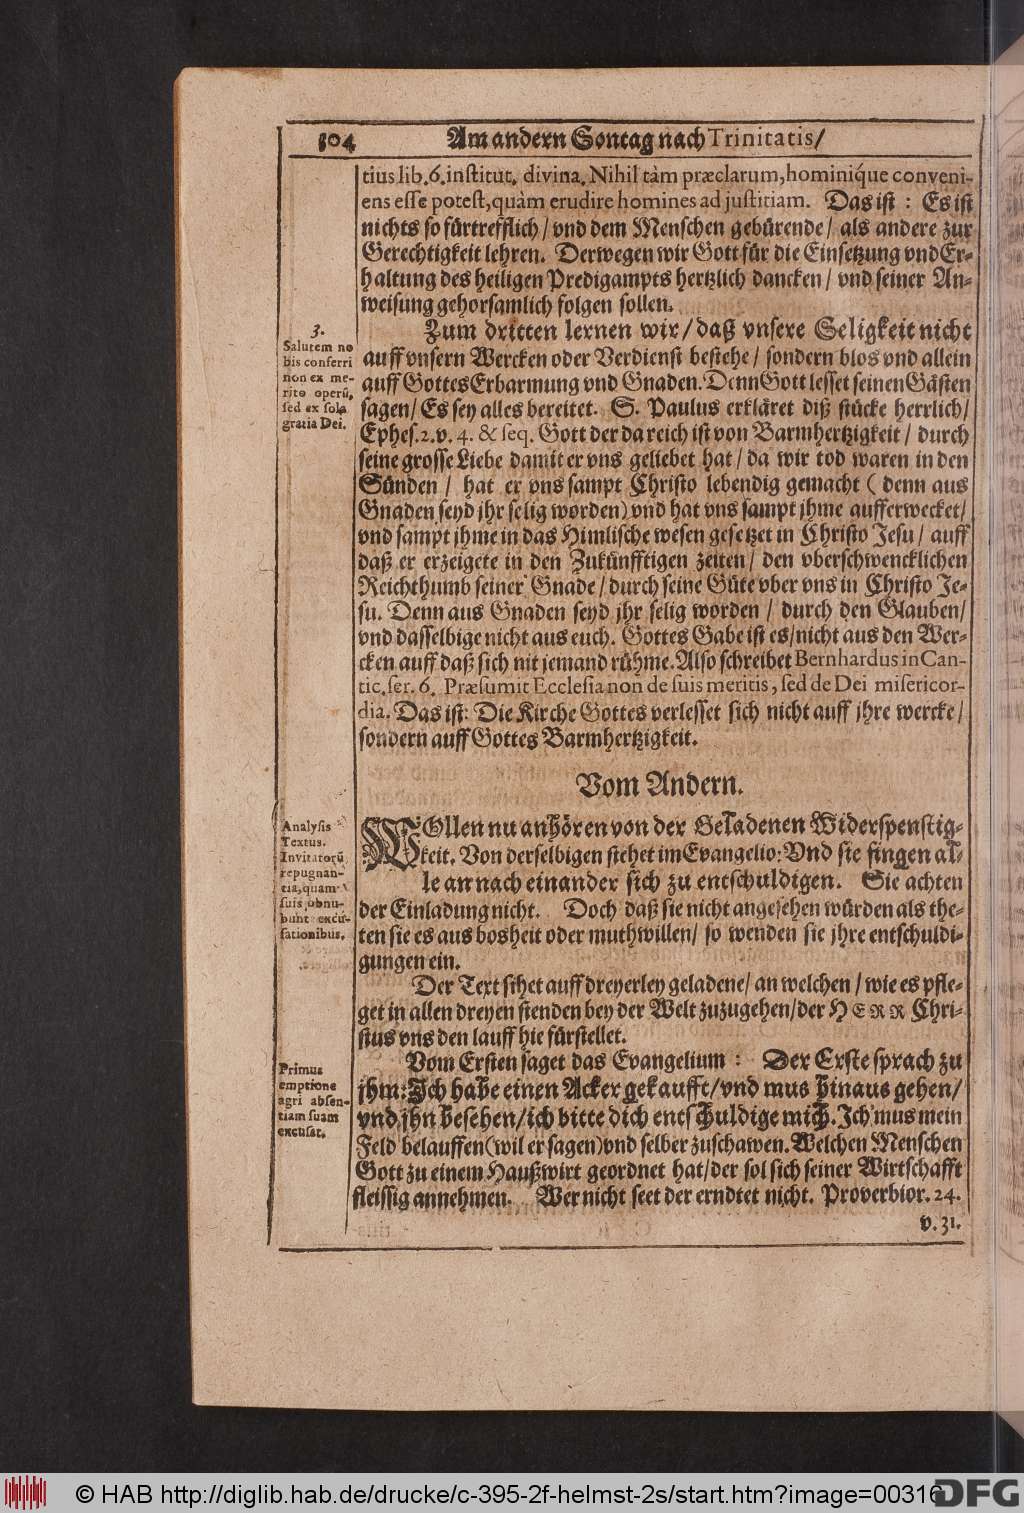 304 Am andern Sontag nach Trinitatis/
tius lib. 6. institut. divina. Nihil tàm præclarum, hominiq́ue conveni-
ens esse potest, quàm erudire homines ad justitiam. Das ist: Es ist
nichts so fürtrefflich/ vnd dem Menschen gebürende/ als andere zur
Gerechtigkeit lehren. Derwegen wir Gott für die Einsetzung vnd Er-
haltung des heiligen Predigampts hertzlich dancken/ vnd seiner An-
weisung gehorsamlich folgen sollen.
3.
Salutem no
bis conferri
non ex me-
rito operū,
sed ex sola
gratia Dei.
Zum dritten lernen wir/ daß vnsere Seligkeit nicht
auff vnsern Wercken oder Verdienst bestehe/ sondern blos vnd allein
auff Gottes Erbarmung vnd Gnaden. Denn Gott lesset seinen Gästen
sagen/ Es sey alles bereitet. S. Paulus erkläret diß stücke herrlich/
Ephes. 2. v. 4. & seq. Gott der da reich ist von Barmhertzigkeit/ durch
seine grosse Liebe damit er vns geliebet hat/ da wir tod waren in den
Sünden/ hat er vns sampt Christo lebendig gemacht (denn aus
Gnaden seyd jhr selig worden) vnd hat vns sampt jhme aufferwecket/
vnd sampt jhme in das Himlische wesen gesetzet in Christo Jesu/ auff
daß er erzeigete in den Zukünfftigen zeiten/ den vberschwencklichen
Reichthumb seiner Gnade/ durch seine Güte vber vns in Christo Je-
su. Denn aus Gnaden seyd jhr selig worden/ durch den Glauben/
vnd dasselbige nicht aus euch. Gottes Gabe ist es/ nicht aus den Wer-
cken auff daß sich nit jemand rühme. Also schreibet Bernhardus in Can-
tic. ser. 6. Præsumit Ecclesia non de suis meritis, sed de Dei misericor-
dia. Das ist: Die Kirche Gottes verlesset sich nicht auff jhre wercke/
sondern auff Gottes Barmhertzigkeit.
Vom Andern.
Analysis
Textus.
Invitatorū
repugnan-
tia, quam
suis obnu-
bunt excu-
sationibus.
WOllen nu anhören von der Geladenen Widerspenstig-
keit. Von derselbigen stehet im Evangelio: Vnd sie fingen al-
le an nach einander sich zu entschuldigen. Sie achten
der Einladung nicht. Doch daß sie nicht angesehen würden als the-
ten sie es aus bosheit oder muthwillen/ so wenden sie jhre entschuldi-
gungen ein.
Der Text sihet auff dreyerley geladene/ an welchen/ wie es pfle-
get in allen dreyen stenden bey der Welt zuzugehen/ der HERR Chri-
stus vns den lauff hie fürstellet.
Primus
emptione
agri absen-
tiam suam
excusat.
Vom Ersten saget das Evangelium: Der Erste sprach zu
jhm: Ich habe einen Acker gekaufft/ vnd mus hinaus gehen/
vnd jhn besehen/ ich bitte dich entschuldige mich. Ich mus mein
Feld belauffen (wil er sagen) vnd selber zuschawen. Welchen Menschen
Gott zu einem Haußwirt geordnet hat/ der sol sich seiner Wirtschafft
fleissig annehmen. Wer nicht seet der erndtet nicht. Proverbior. 24.
v. 31.
© HAB http://diglib.hab.de/drucke/c-395-2f-helmst-2s/start.htm?image=00316
DFG